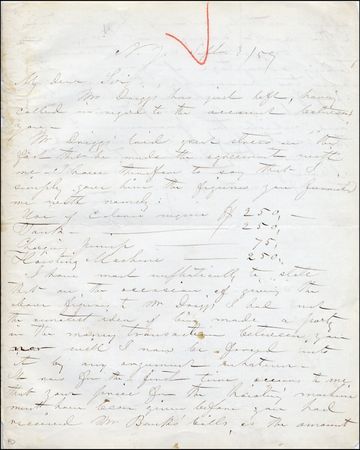 N.Y. 3/57
My Dear Sir
Mr Driggs has just left, having
called in regard to the account between
you.
Mr Driggs laid great stress on the
fact that he made the agreement with
me. I have therefore to say that I
simply gave him the figures you furnished
me with namely:
Use of engine $ 250,-
Tank 250,-
pump 75,-
Hoisting Machine 250,-
I have most sufficiently to state
that on the occasion of giving the
above figures to Mr Driggs I had not
the remotest idea of being made a party
in the money transaction between you
nor will I now be forced into
it by any argument whatever.
It now for the first time occurs to me
that your prices for the hoisting machine
must have been given before you had
received Mr Banks' bills, as the amount